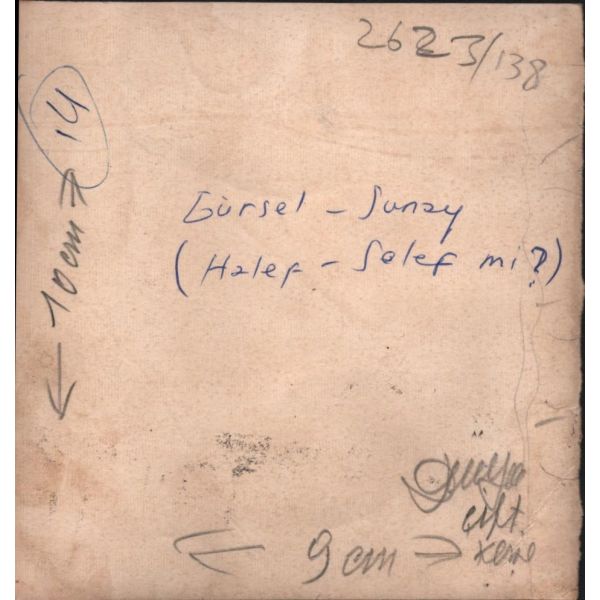 2623/138
14
10 cm
Gürsel - Sunay
(Halef - Selef mi?)
çift
9 cm